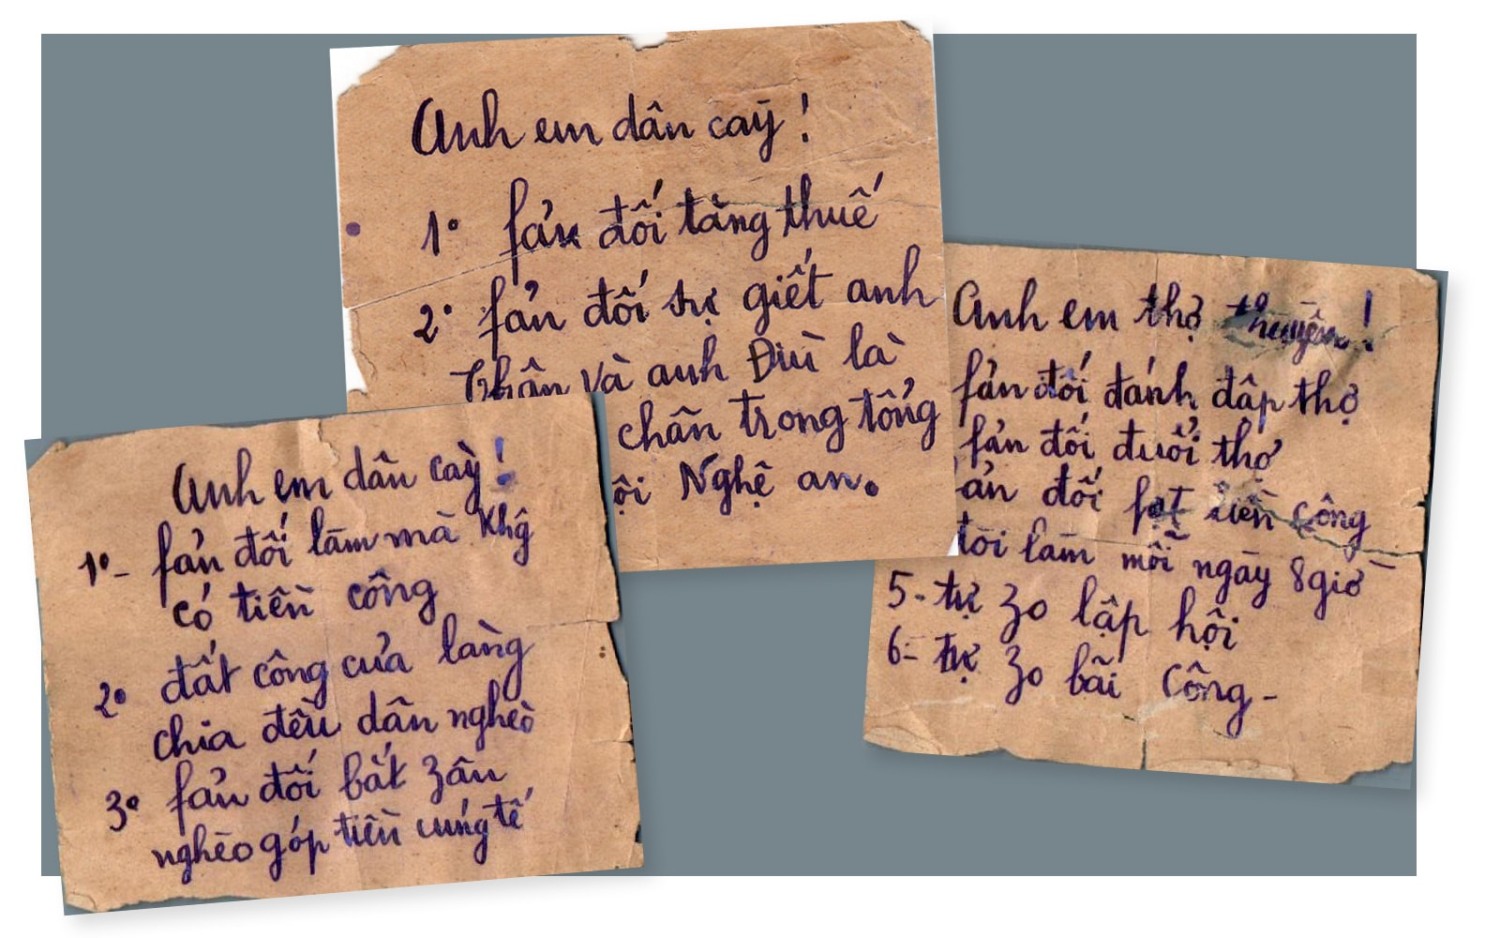 Anh em dân caỳ!
1° fản đối tăng thuế
2° fản đối sự giết anh
Thân và anh Điù là
chân trong tổng
ội Nghệ an.
Anh em dân caỳ!
1°- fản đối làm mà khĝ
có tiền công
2° đất công của làng
chia đều dân nghèo
3° fản đối bắt zân
nghèo góp tiền cúng tế
Anh em thợ thuyền!
fản đối đánh đập thợ
fản đối đuổi thợ
ản đối fạt tiền công
đòi làm mỗi ngày 8 giờ
5- tự zo lập hội
6- tự zo bãi công-